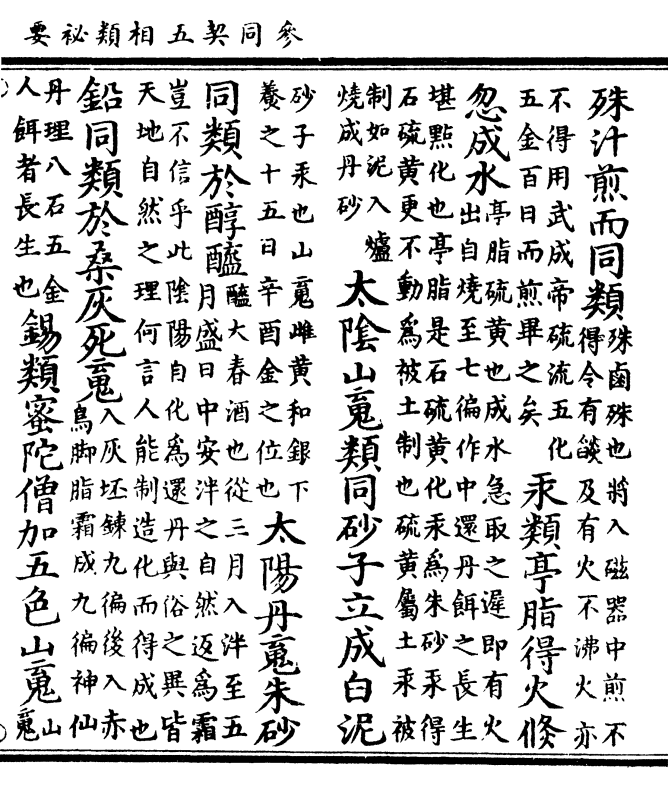 參同契五相類祕要
殊汁煎而同類
殊鹵殊也將入磁器中煎不
得令有燄及有火不沸火亦
不得用武成帝硫流五化
五金百日而煎畢之矣
汞類亭脂得火倏
忽成水
亭脂硫黄也成水急取之遲即有火
出自燒至七徧作中還丹餌之長生
堪點化也亭脂是石硫黄化汞為朱砂汞得
石硫黄更不動為被土制也硫黄屬土汞被
制如泥入爐
燒成丹砂
太陰山䰟類同砂子立成白泥
砂子汞也山䰟雌黄和銀下
養之十五日辛酉金之位也
太陽丹䰟朱砂
同類於醇醯
醯大春酒也從三月入泮至五
月盛日中安泮之自然返為霜
豈不信乎此陰陽自化為還丹與俗之異皆
天地自然之理何言人能制造化而得成也
鉛同類於桑灰死䰟
入灰坯鍊九徧後入赤
鳥脚脂霜成九徧神仙
丹理八石五金
人餌者長生也
錫類蜜陀僧加五色山䰟
山
䰟